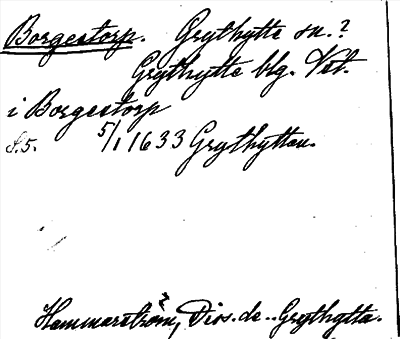 Borgestorp. Grythytte sn.?
Grythytte blg. Vstl.
i Borgestorp
S.5. 5/1 1633 Grythyttan.
Hammarström, Diss. de .. Grythytta.